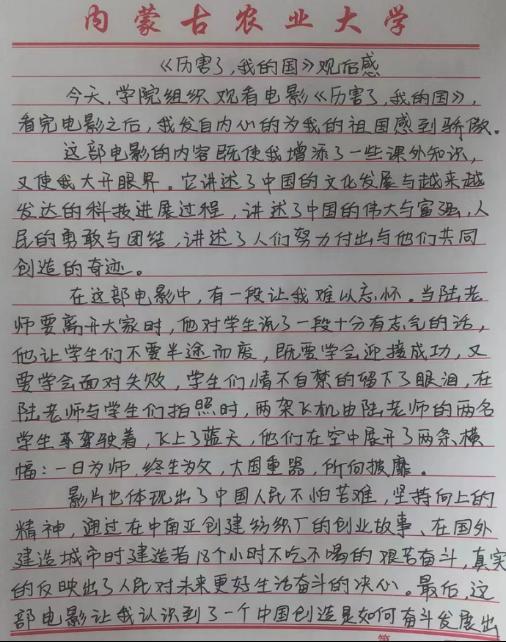 内蒙古农业大学
《厉害了,我的国》观后感
今天,学院组织观看电影《厉害了,我的国》,
看完电影之后,我发自内心的为我的祖国感到骄傲.
这部电影的内容既使我增添了一些课外知识,
又使我大开眼界。它讲述了中国的文化发展与越来越
发达的科技进展过程,讲述了中国的伟大与富强,人
民的勇敢与团结,讲述了人们努力付出与他们共同
创造的奇迹。
在这部电影中,有一段让我难以忘怀。当陆老
师要离开大家时,他对学生说了一段十分有志气的话,
他让学生们不要半途而废,既要学会迎接成功,又
要学会面对失败,学生们情不自禁的留下了眼泪,在
陆老师与学生们拍照时,两架飞机由陆老师的两名
学生驾驶着,飞上了蓝天,他们在空中展开了两条横
幅:一日为师,终生为父,大国重器,所向披靡。
影片也体现出了中国人民不怕苦难,坚持向上的
精神,通过在中南亚创建纺织厂的创业故事、在国外
建造城市时建造者18个小时不吃不喝的艰苦奋斗,真实
的反映出了人民对未来更好生活奋斗的决心。最后,这
部电影让我认识到了一个中国创造是如何奋斗发展出